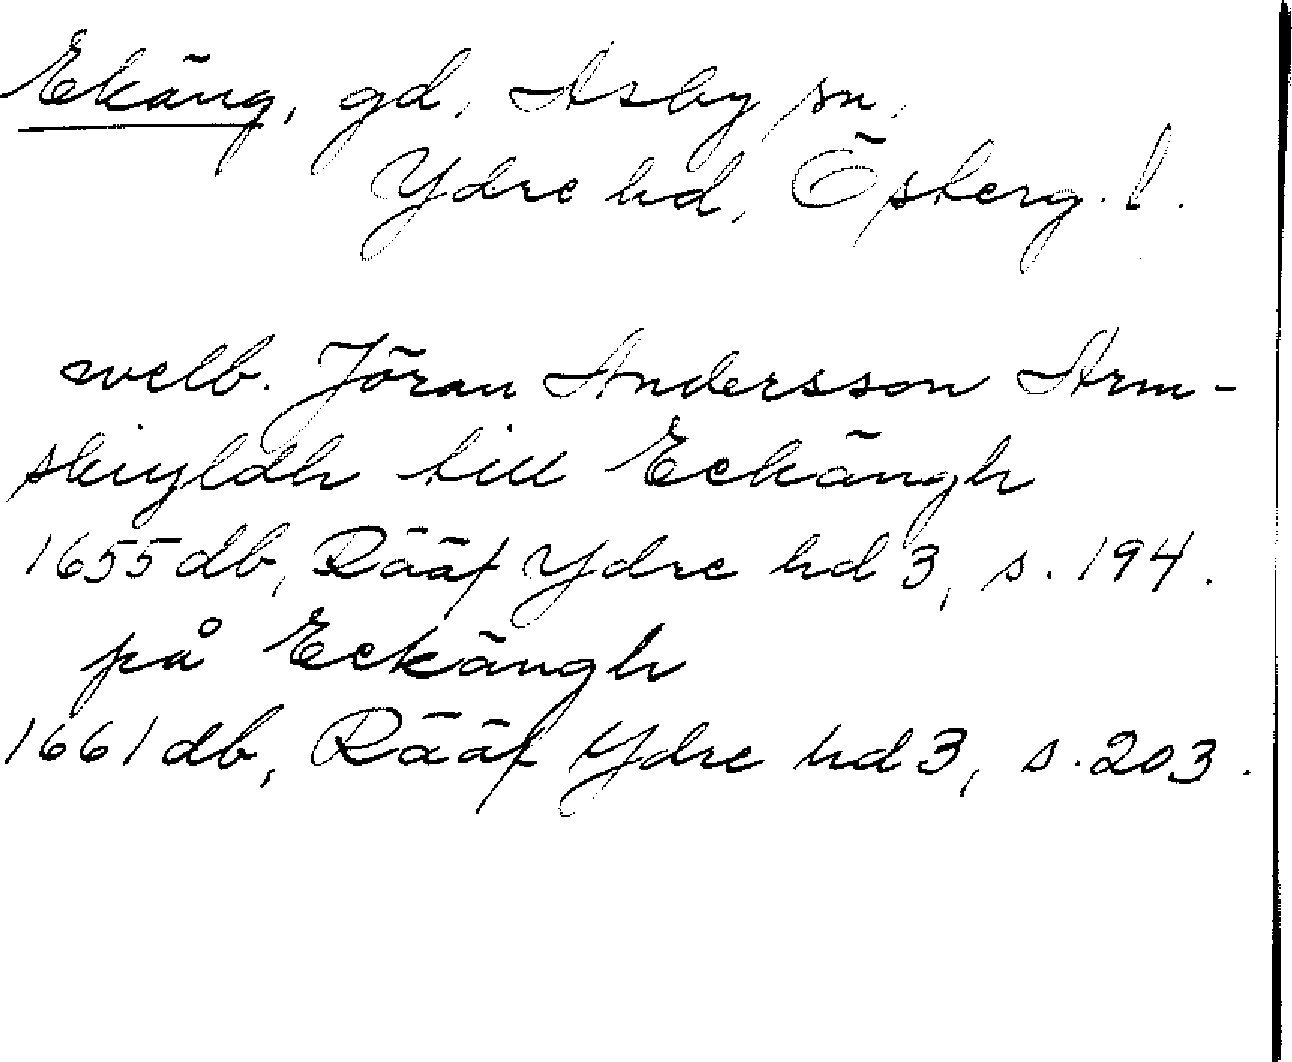 Ekäng, gd, Asby sn,
Ydre hd, Österg. l.
welb. Jöran Andersson Arm-
skiyldh till Eckängh
1655 db, Rääf Ydre hd 3, s. 194.
på Eckängh
1661 db, Rääf Ydre hd 3, s. 203.